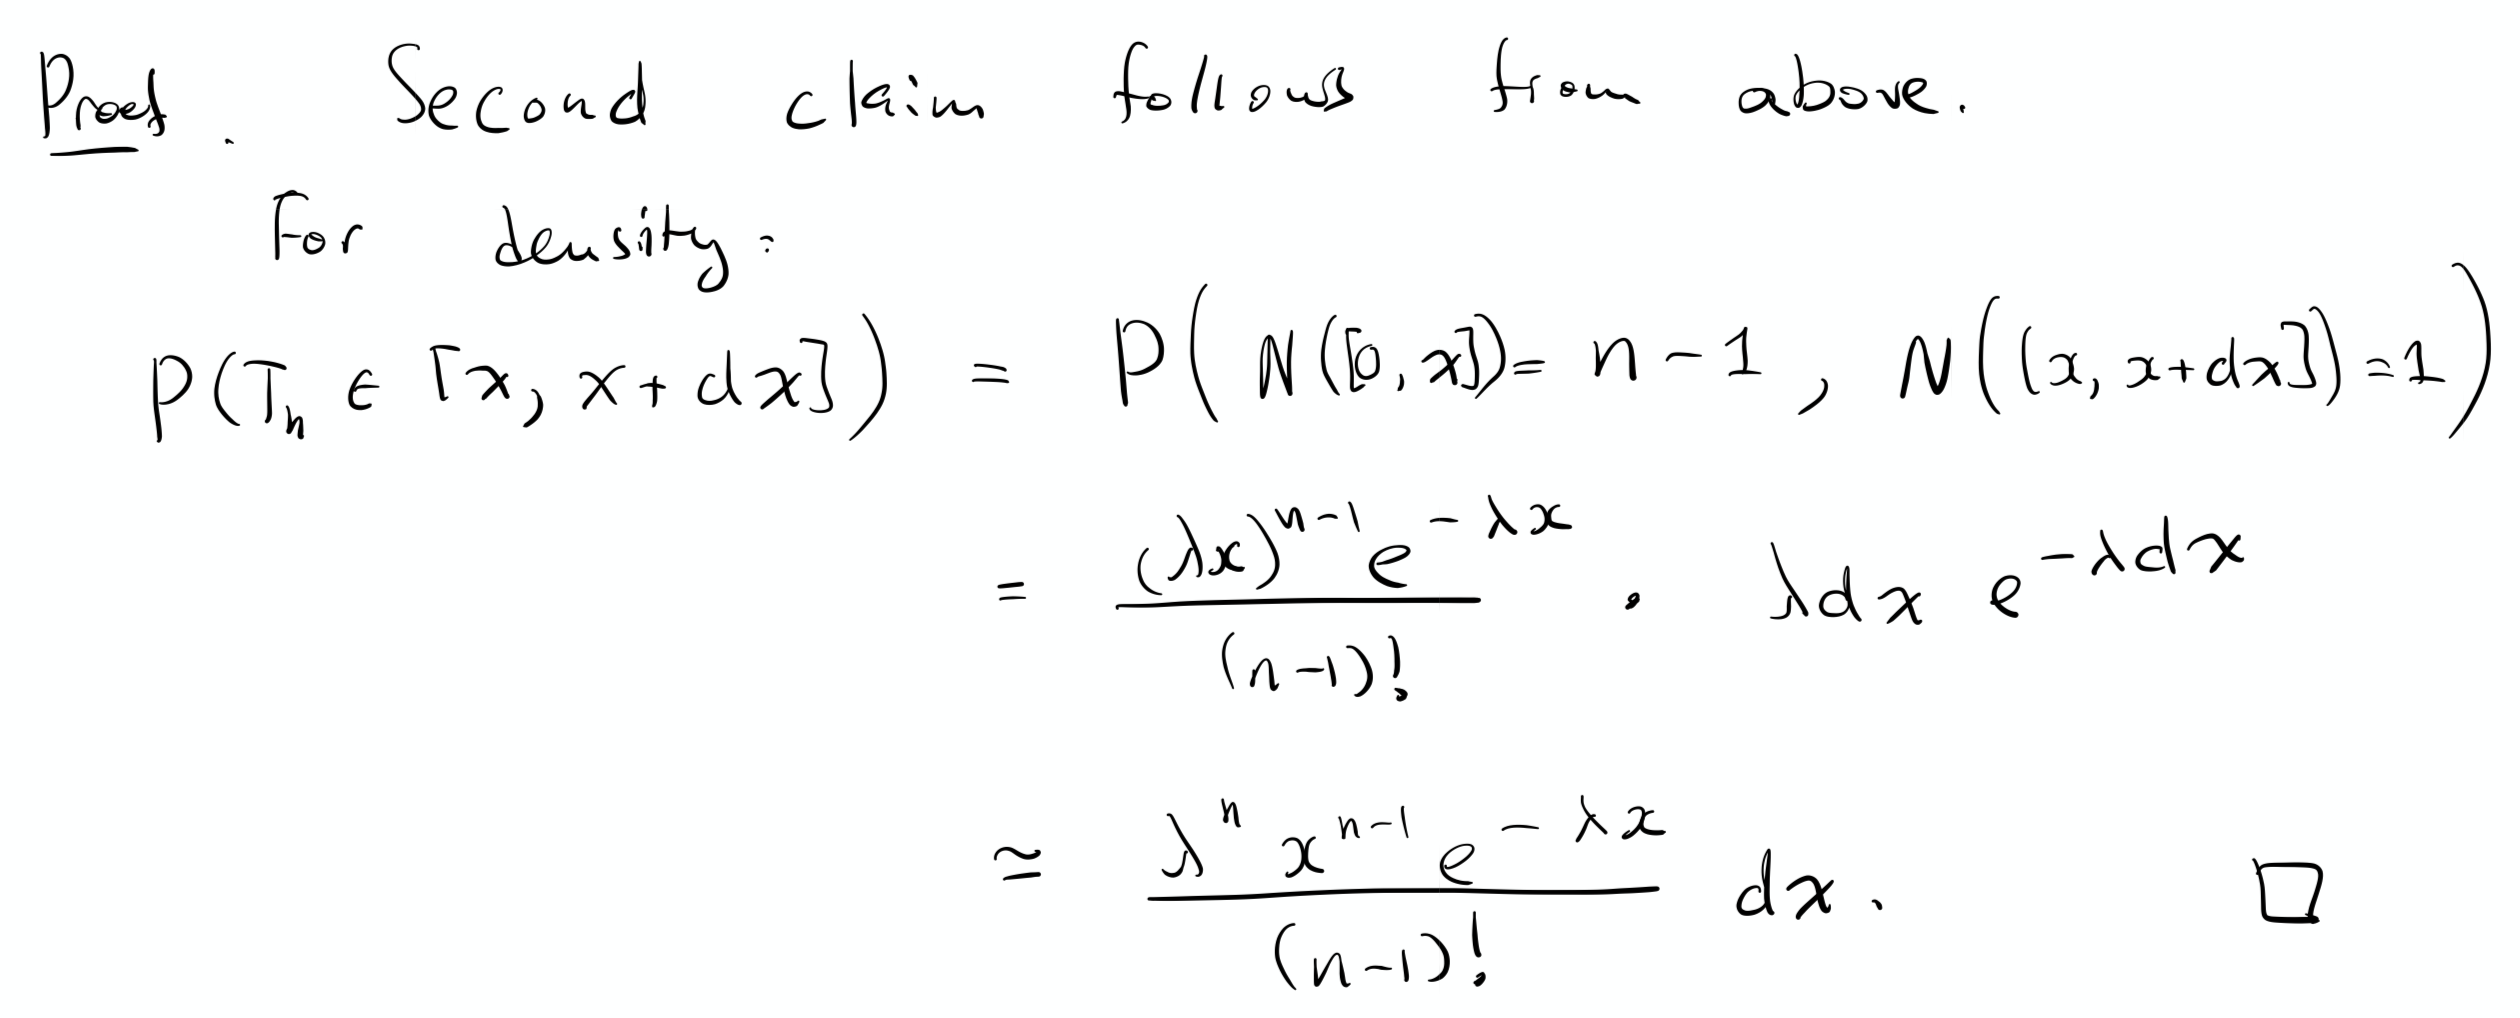 Proof. Second claim follows from above.
For density:
P(Tₙ ∈ [x, x + dx]) = P(N([0, x]) = n - 1, N((x, x+dx]) = 1)
= (λx)^{n-1} e^{-λx} / (n-1)! · λdx e^{-λdx}
≃ λ^n x^{n-1} e^{-λx} / (n-1)! dx. □